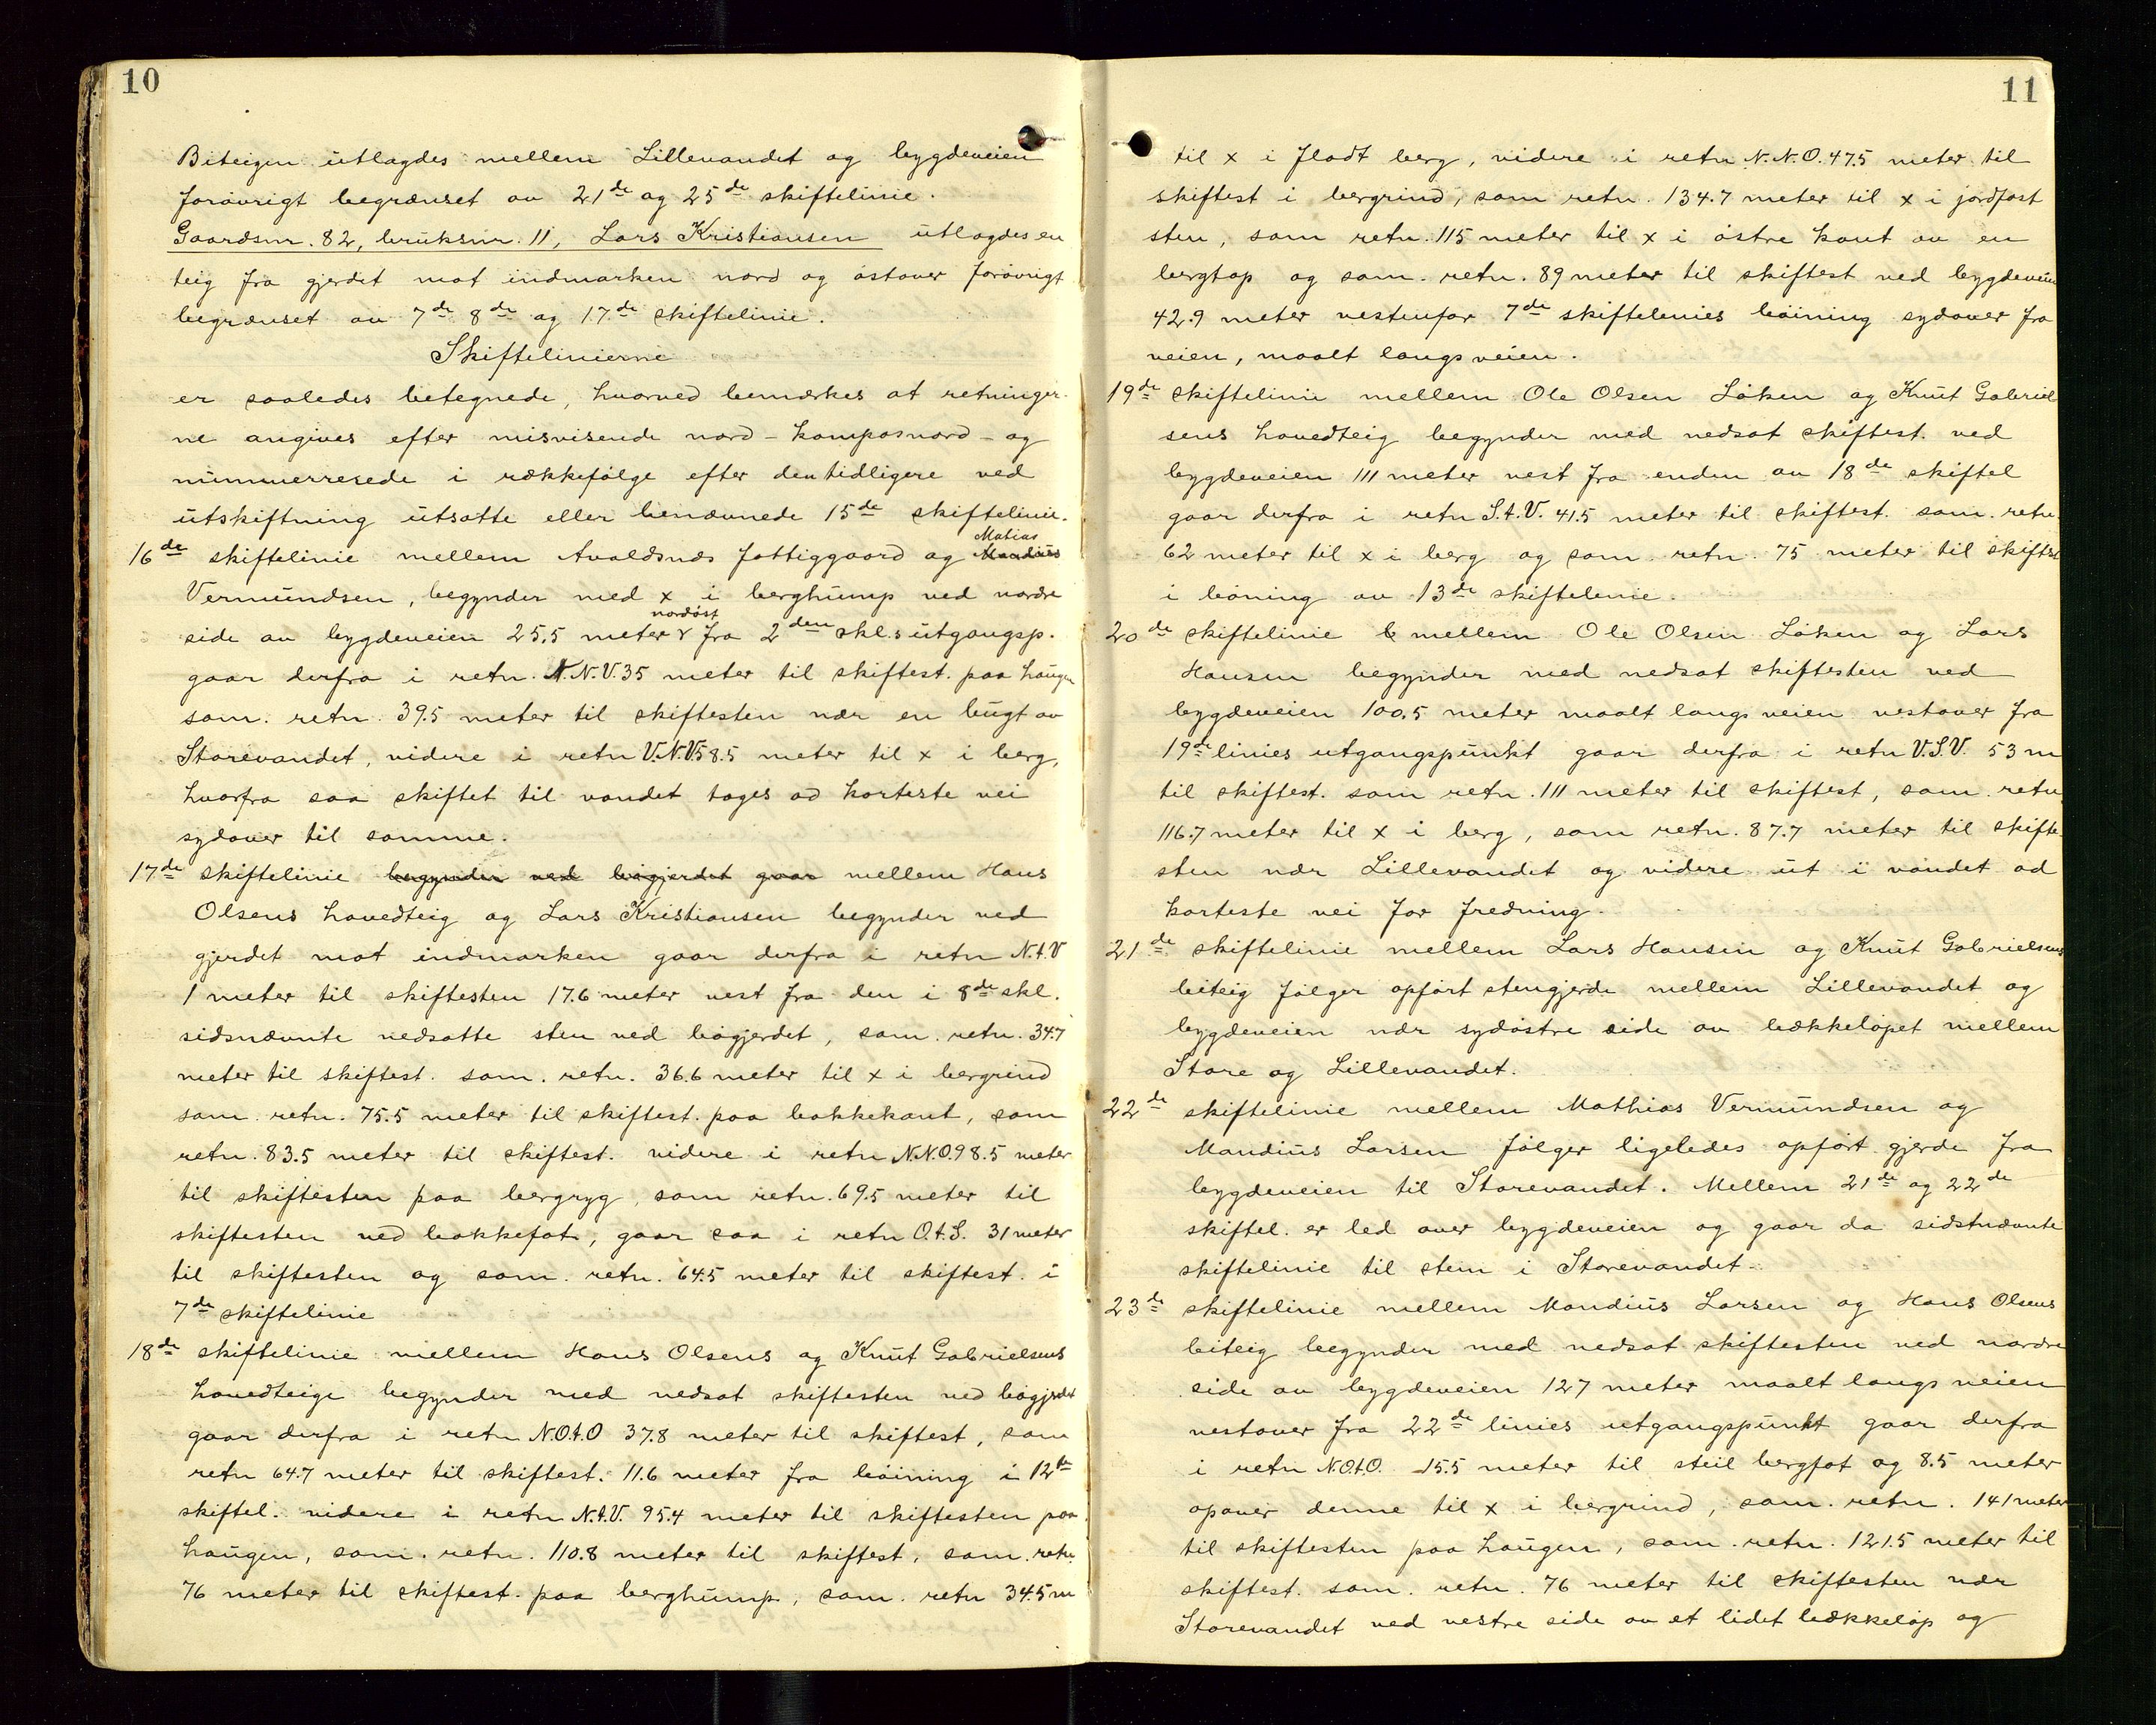 10
Biteigen utlagdes mellem Lillevandet og bygdeveien
forøvrigt begrænset av 21de og 25de skiftelinie.
Gaardsnr. 82, bruksnr. 11, Lars Kristiansen utlagdes en
teig fra gjerdet mot indmarken nord og østover forøvrigt
begrænset av 7de 8de og 17de skiftelinie.
Skiftelinierne
er saaledes betegnede, hvorved bemærkes at retninger-
ne angives efter misvisende nord - kompasnord - og
nummererede i rækkefølge efter den tidligere ved
utskiftning utsatte eller benævnede 15de skiftelinie.
16de skiftelinie mellem Avaldsnæs fattiggaard og Mandius Matias
Vermundsen, begynder med x i berghump ved nordre
side av bygdeveien 25.5 meter nordøst fra 2den skl.s utgangsp.
gaar derfra i retn. N.N.V. 35 meter til skiftest. paa haugen
sam. retn. 39.5 meter til skiftesten nær en bugt av
Storevandet, videre i retn V.N.V. 58.5 meter til x i berg,
hvorfra saa skiftet til vandet tages ad korteste vei
sydover til samme.
17de skiftelinie begynder ved bøgjerdet gaar mellem Hans
Olsens hovedteig og Lars Kristiansen begynder ved
gjerdet mot indmarken gaar derfra i retn N.t.V
1 meter til skiftesten 17.6 meter vest fra den i 8de skl.
sidsnævnte nedsatte sten ved bøgjerdet, sam. retn. 34.7
meter til skiftest. sam. retn. 36.6 meter til x i bergrind
sam retn. 75.5 meter til skiftest. paa bakkekant, sam
retn. 83.5 meter til skiftest. videre i retn N.N.O. 98.5 meter
til skiftesten paa bergryg, sam retn. 69.5 meter til
skiftesten ved bakkefot, gaar saa i retn O.t.S. 31 meter
til skiftesten og sam. retn. 64.5 meter til skiftest. i
7de skiftelinie
18de skiftelinie mellem Hans Olsens og Knut Gabrielsens
hovedteige begynder med nedsat skiftesten ved bøgjerdet
gaar derfra i retn N.O.t.O 37.8 meter til skiftest, sam
retn 64.7 meter til skiftest. 11.6 meter fra bøining i 12te
skiftel. videre i retn N.t.V. 95.4 meter til skiftesten paa
haugen, sam. retn. 110.8 meter til skiftest, sam. retn.
76 meter til skiftest. paa berghump, sam. retn 34.5 m
11
til x i fladt berg, videre i retn N.N.O. 47.5 meter til
skiftest i bergrind, sam retn. 134.7 meter til x i jordfast
sten, sam retn. 115 meter til x i østre kant av en
bergtop og sam. retn. 89 meter til skiftest ved bygdeveien
42.9 meter vestenfor 7de skiftelinies bøining sydover fra
veien, maalt langs veien.
19de skiftelinie mellem Ole Olsen Løken og Knut Gabriel
sens hovedteig begynder med nedsat skiftest. ved
bygdeveien 111 meter vest fra enden av 18de skiftel
gaar derfra i retn S.t.V. 41.5 meter til skiftest. sam. retn.
62 meter til x i berg og sam. retn. 75 meter til skiftest
i bøning av 13de skiftelinie.
20de skiftelinie b mellem Ole Olsen Løken og Lars
Hansen begynder med nedsat skiftesten ved
bygdeveien 100.5 meter maalt langs veien vestover fra
19de linies utgangspunkt gaar derfra i retn V.S.V. 53 m
til skiftest. sam retn. 111 meter til skiftest, sam. retn.
116.7 meter til x i berg, sam retn. 87.7 meter til skifte
sten nær Lillevandet og videre ut i vandet ad
korteste vei for fredning.
21de skiftelinie mellem Lars Hansen og Knut Gabrielsens
biteig følger opført stengjerde mellem Lillevandet og
bygdeveien nær sydøstre side av bækkeløpet mellem
Store og Lillevandet.
22de skiftelinie mellem Mathias Vermundsen og
Mandius Larsen følger ligeledes opført gjerde fra
bygdeveien til Storevandet. Mellem 21de og 22de
skiftel. er led over bygdeveien og gaar da sidstnævnte
skiftelinie til stem i Storevandet.
23de skiftelinie mellem Mandius Larsen og Hans Olsens
biteig begynder med nedsat skiftesten ved nordre
side av bygdeveien 127 meter maalt langs veien
vestover fra 22de linies utgangspunkt gaar derfra
i retn N.O.t.O. 15.5 meter til steil bergfot og 8.5 meter
opover denne til x i bergrind, sam. retn. 141 meter
til skiftesten paa haugen, sam. retn. 121.5 meter til
skiftest. sam. retn. 76 meter til skiftesten nær
Storevandet ved vestre side av et lidet bækkeløp og